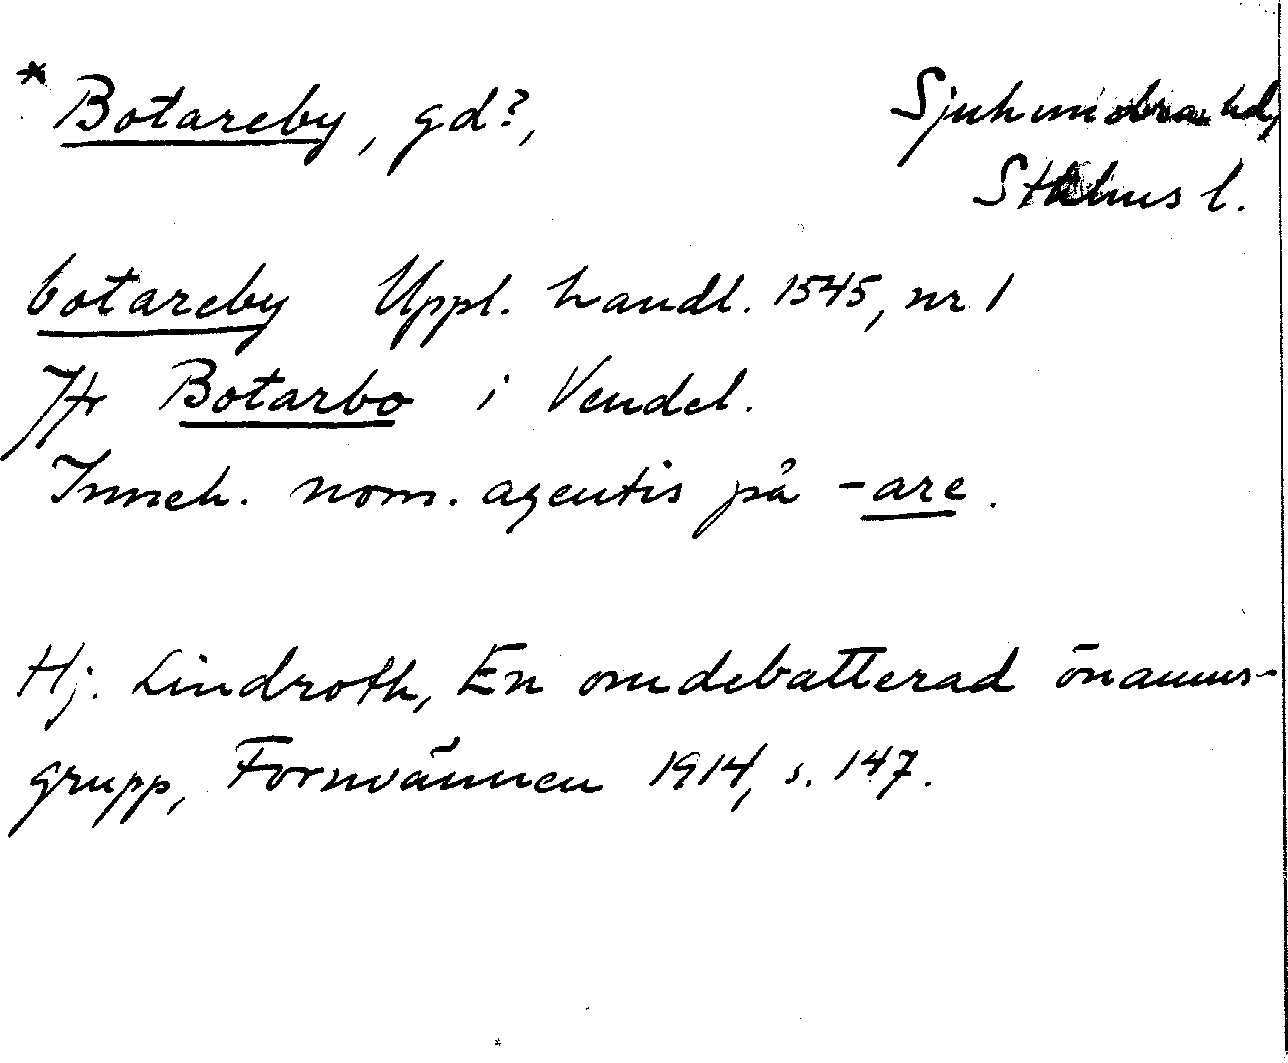 * Botareby, gd?, Sjuhundra hd,
Sthlms l.
botareby Uppl. handl. 1545, nr 1
Jfr Botarbo i Vendel.
Inneh. nom. agentis på -are.
Hj. Lindroth, En omdebatterad önamns-
grupp, Fornvännen 1914, s. 147.